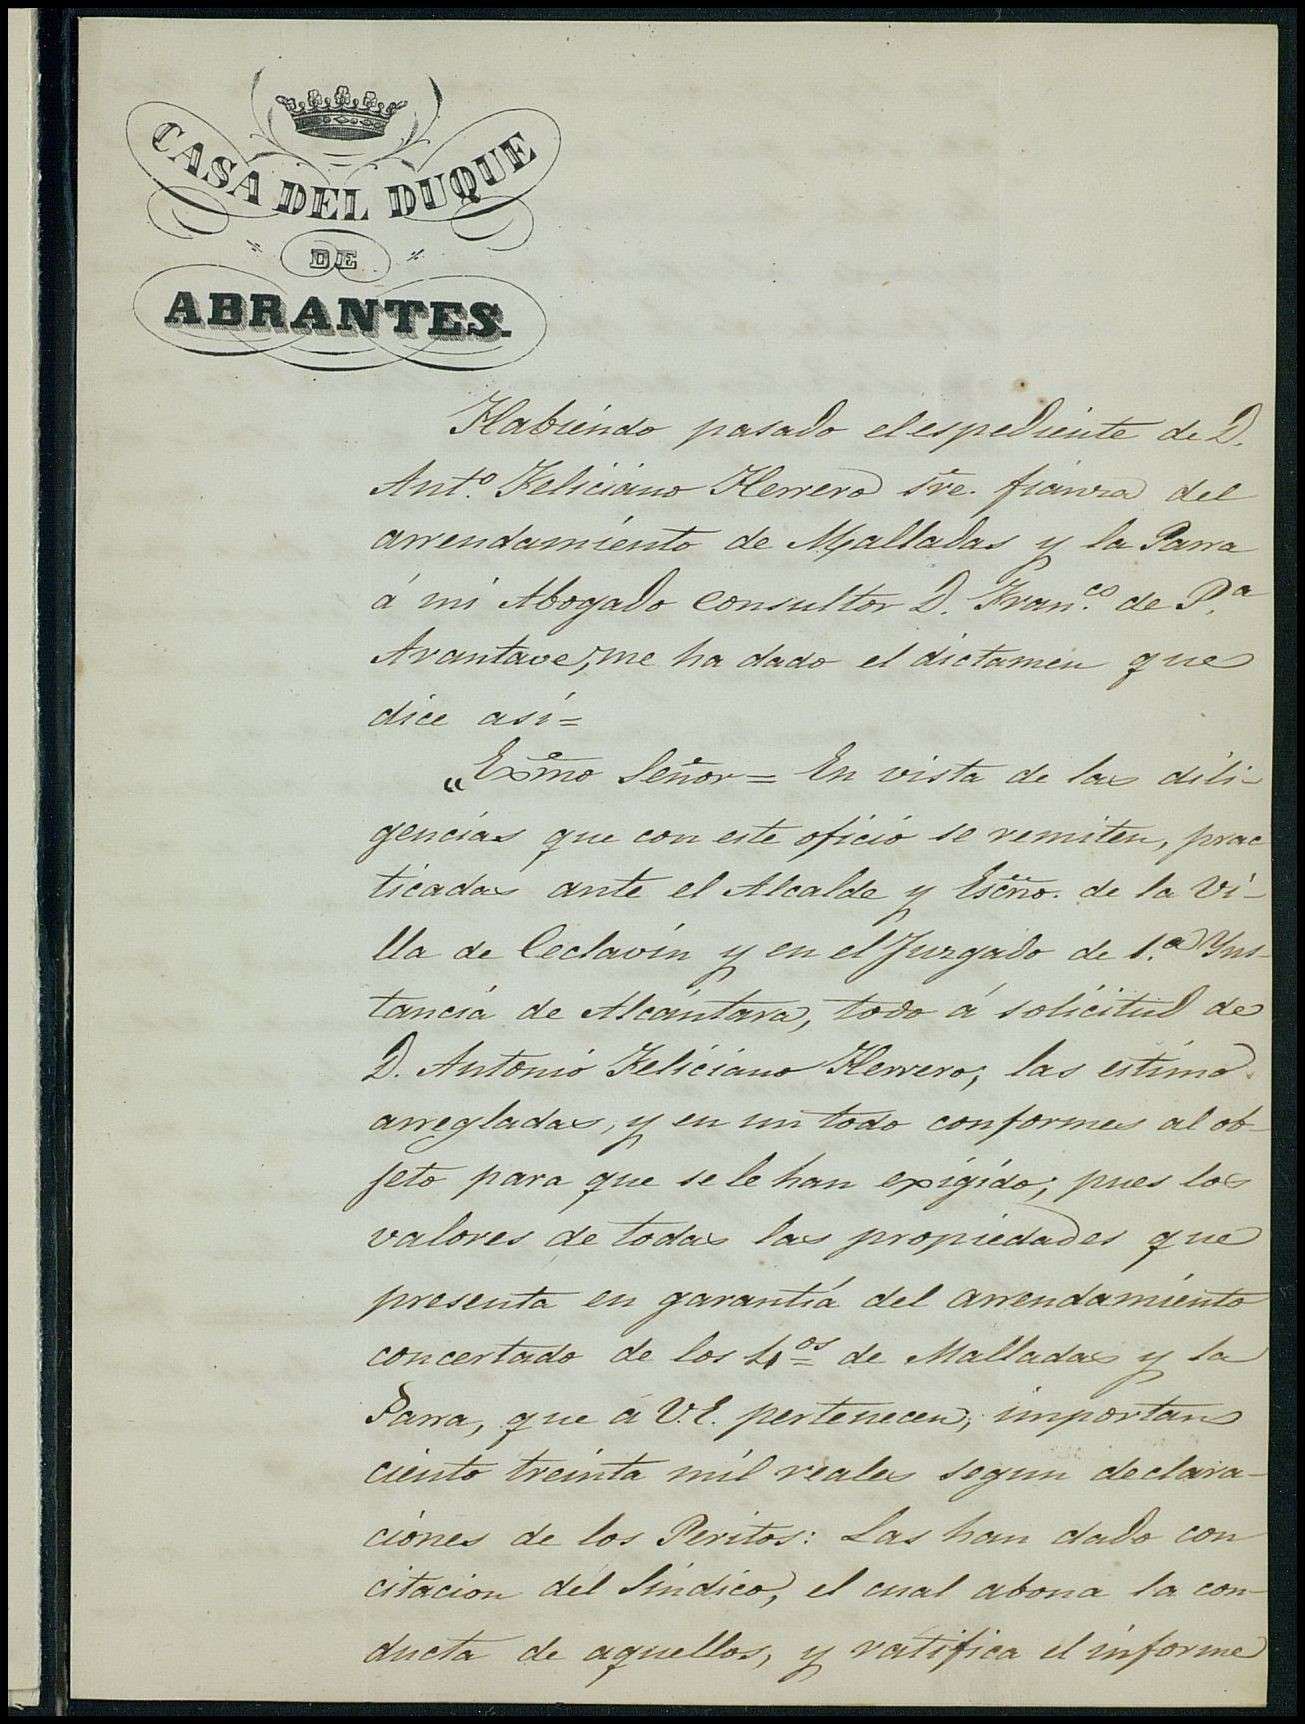 CASA DEL DUQUE
DE
ABRANTES.
Habiendo pasado el espediente de D.
Ant.º Feliciano Herrero sre. fianza del
arrendamiento de Malladas y la Parra
á mi Abogado Consultor D. Fran.co de P.a
Arantave, me ha dado el dictamen que
dice así=
„Exmo Señor= En vista de las dili-
gencias que con este oficio se remiten, prac
ticadas ante el Alcalde y Escño. de la Vi-
lla de Ceclavin y en el Juzgado de 1.a Yns-
tancia de Alcántara, todo á solicitud de
D. Antonio Feliciano Herrero; las estimo
arregladas, y en un todo conformes al ob-
jeto para que se le han exigido; pues los
valores de todas las propiedades que
presenta en garantía del arrendamiento
concertado de los 4os de Malladas y la
Parra, que á V.E. pertenecen, importan
ciento treinta mil reales segun declara-
ciones de los Peritos: Las han dado con
citacion del Síndico, el cual abona la con-
ducta de aquellos, y ratifica el informe